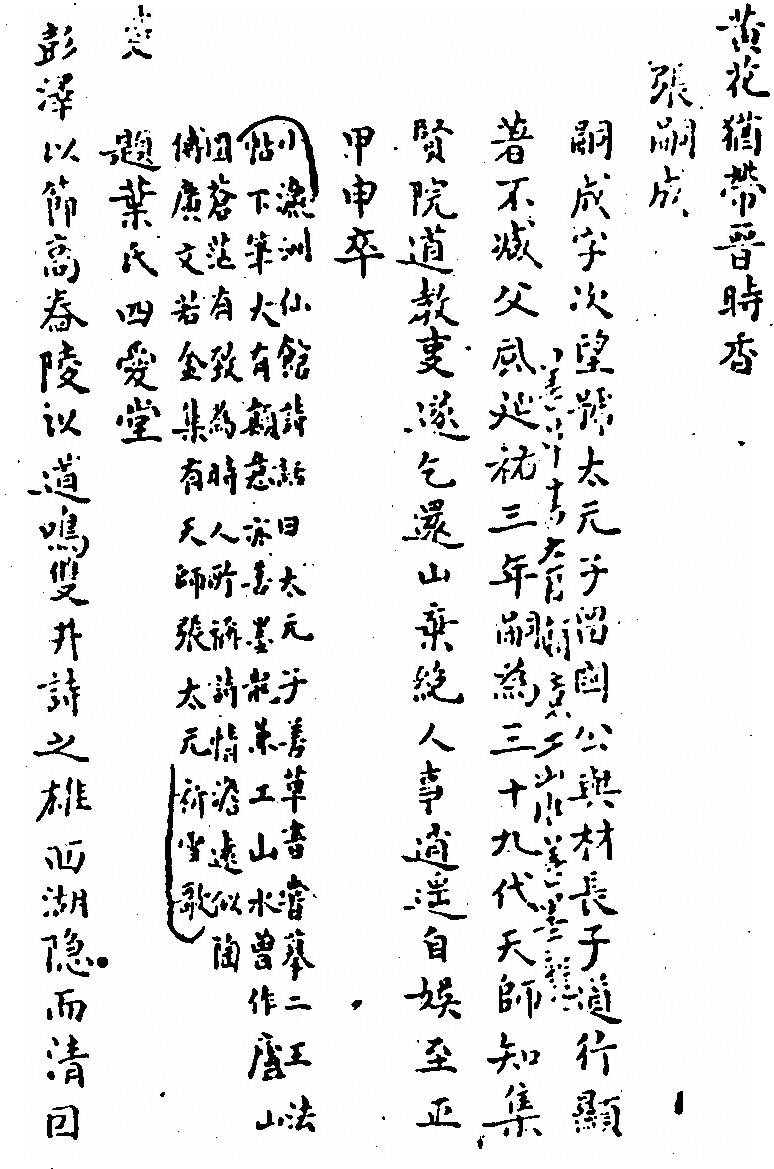 黄花猶帶晉時香
張嗣成
嗣成字次望號太元子留國公與材長子道行顯
善草書
著不減父風延祐三年嗣為三十九代天師知集
賢院道教事遂乞還山棄絶人事逍遥自娛至正
甲申卒
小瀛洲仙館詩話曰太元子善草書嘗摹二王法
帖下筆大有顛意亦善墨龍兼工山水曾作廬山
図蒼茫有致為時人所稱詩情澹遠似陶
傅廣文若金集有天師張太元祈雪歌
題葉氏四愛堂
彭澤以節高舂陵以道鳴雙井詩之雄西湖隐而清回